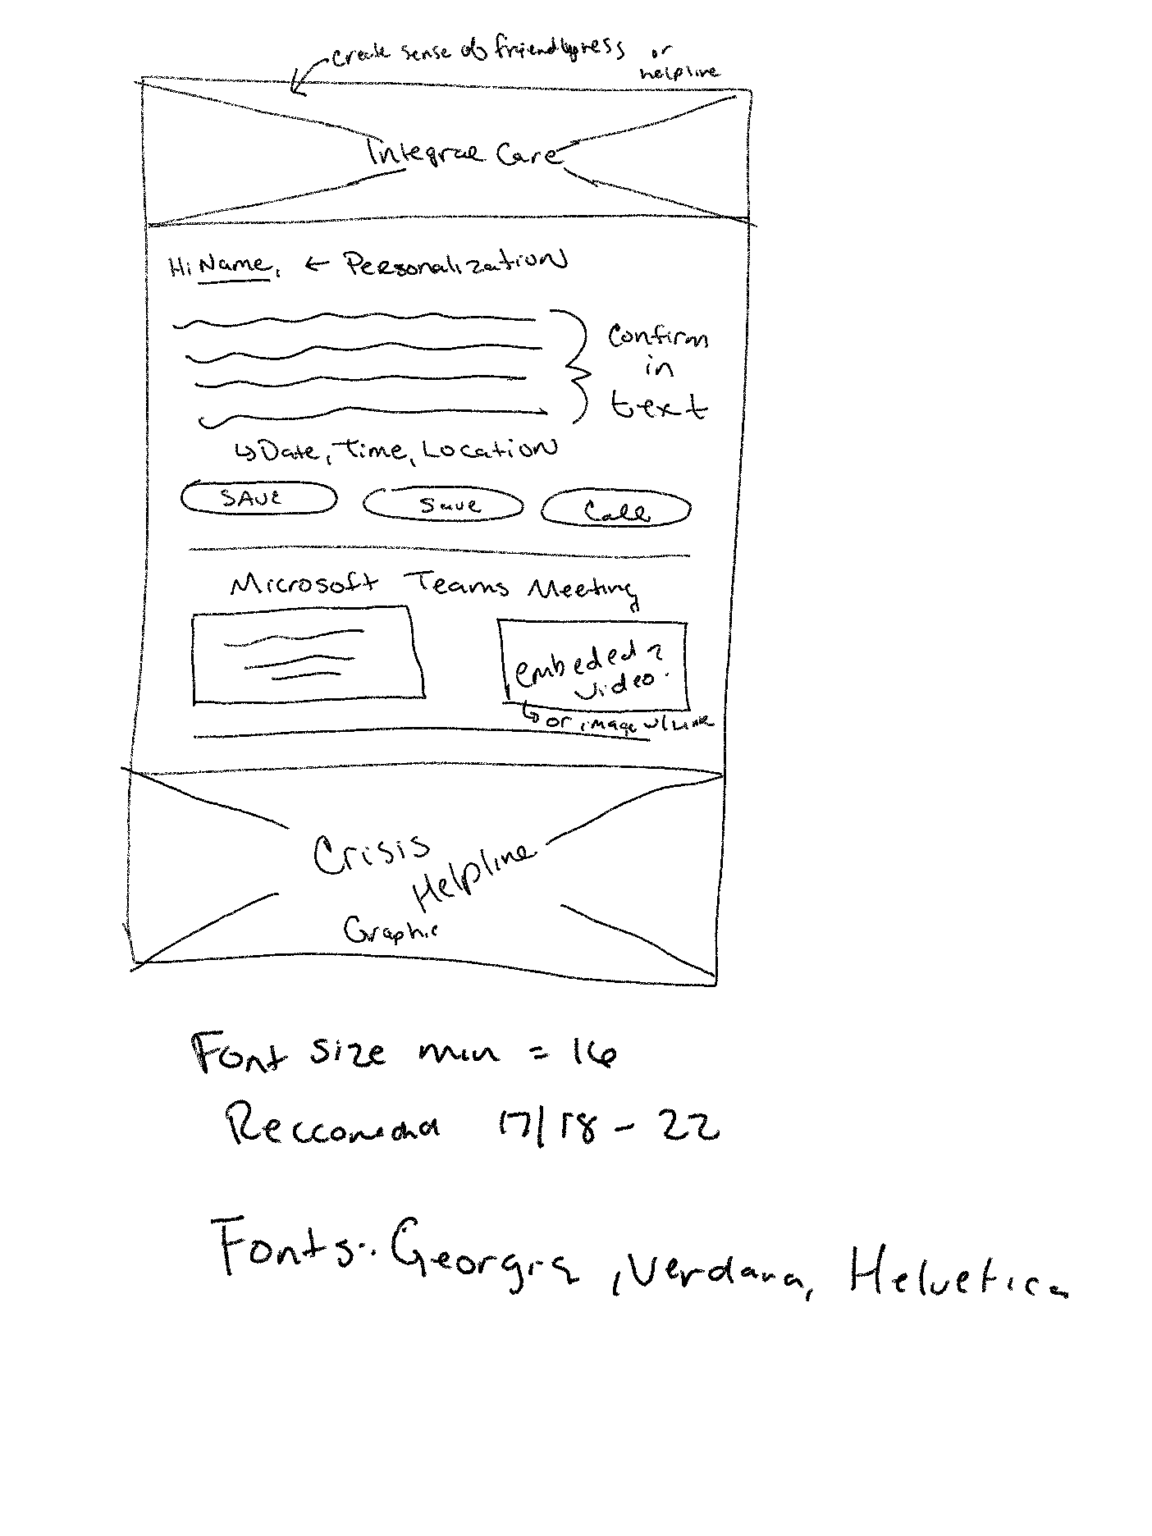 create sense of friendlyness or
helpline
Integral Care
Hi Name, ← Personalization
Confirm
in
text
↳ Date, Time, Location
SAVE Save Call
Microsoft Teams Meeting
embeded ?
video.
↳ or image w/link
Crisis
Helpline
Graphic
Font size min = 16
Reccomend 17/18 - 22
Fonts: Georgia, Verdana, Helvetica